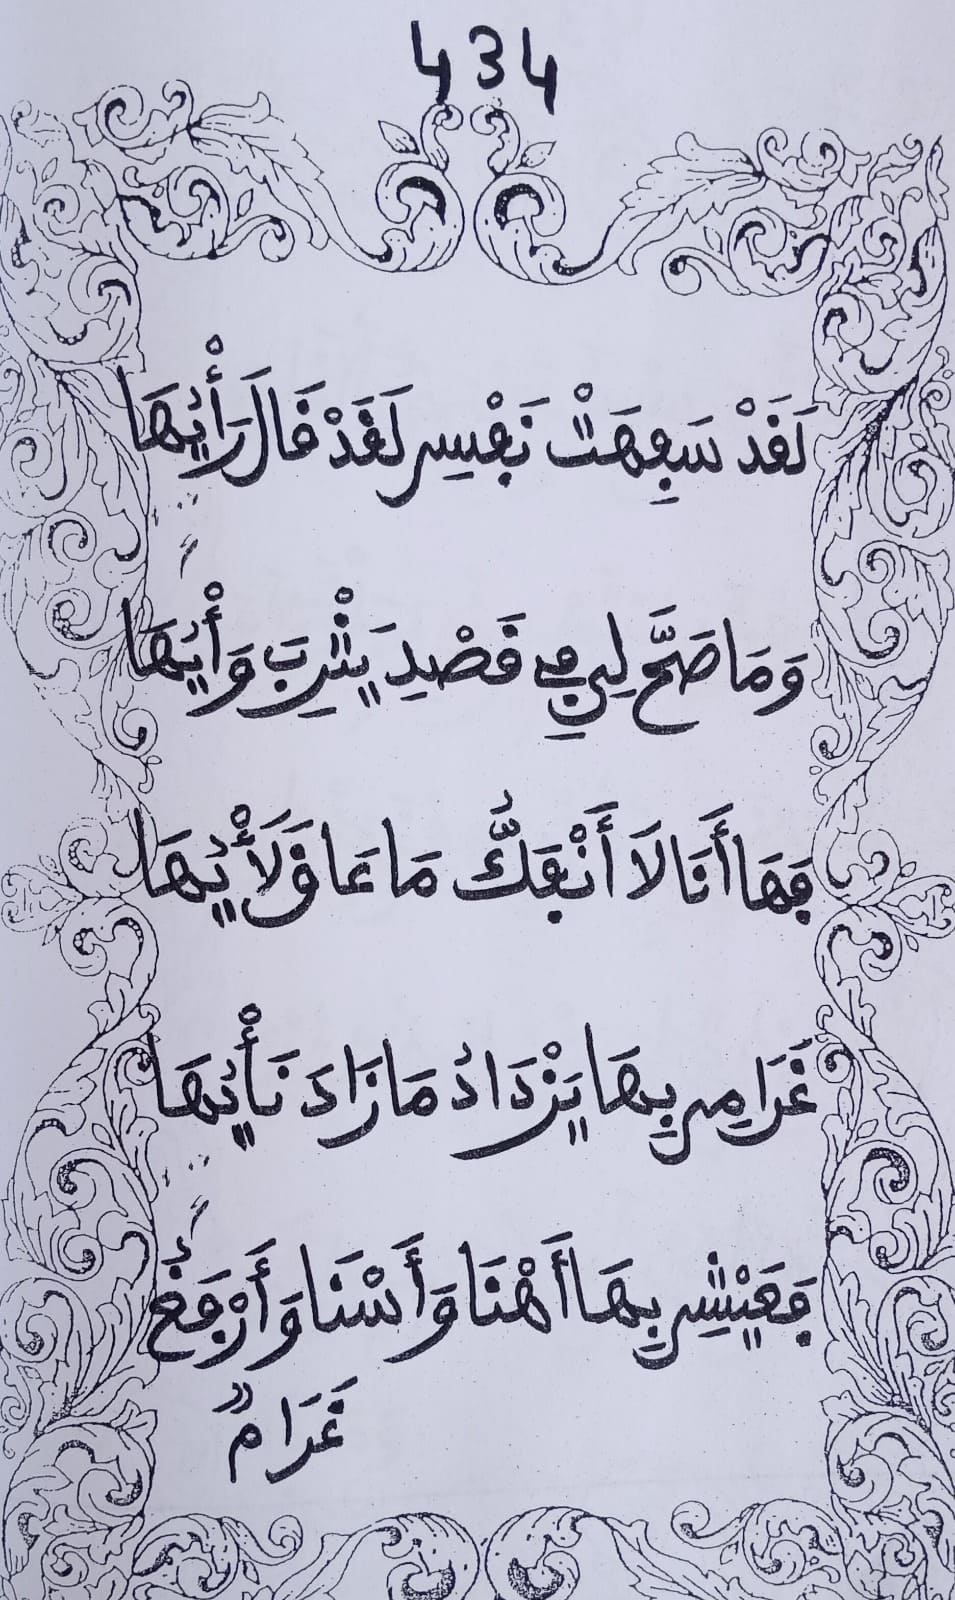 434
لَقَدْ سَفِهَتْ نَفْسِي لَقَدْ فَالَ رَأْيُهَا
وَمَا صَحَّ لِي فِي قَصْدِ يَثْرِبَ وَأْيُهَا
فَهَا أَنَا لَا أَنْفَكُّ مَا عَاقَ لَأْيُهَا
غَرَامِي بِهَا يَزْدَادُ مَا زَادَ نَأْيُهَا
فَعَيْشِي بِهَا أَهْنَا وَأَسْنَا وَأَرْفَغُ
غَرَامٌ